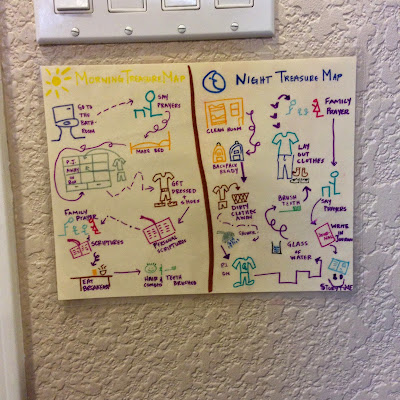 MORNING TREASURE MAP
GO TO
THE
BATH-
ROOM
SAY
PRAYERS
MAKE BED
P.J.
AWAY
GET
DRESSED
+ SHOES
FAMILY
PRAYER
SCRIPTURES
PERSONAL
SCRIPTURES
EAT
BREAKFAST
HAIR
COMBED
TEETH
BRUSHED
NIGHT TREASURE MAP
CLEAN ROOM
FAMILY
PRAYER
BACKPACK
READY
LAY
OUT
CLOTHES
DIRTY
CLOTHES
AWAY
BRUSH
TEETH
SAY
PRAYERS
SHOWER
GLASS
OF
WATER
WRITE
IN
JOURNAL
P.J.
ON
STORYTIME